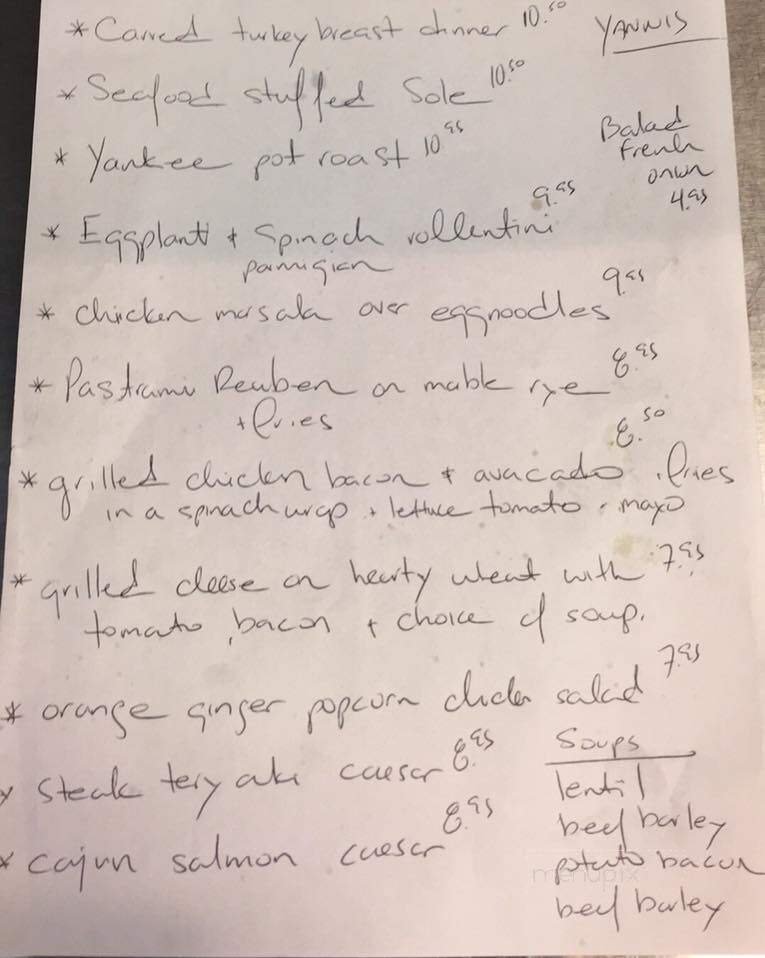 * Carved turkey breast dinner 10.50
YANNIS
* Seafood stuffed Sole 10.50
* Yankee pot roast 10.95
Baked
french
onion
4.95
* Eggplant + Spinach rollentini 9.95
parmigian
* chicken marsala over eggnoodles 9.95
* Pastrami Reuben on marble rye 8.95
+ fries
* grilled chicken bacon + avacado, fries 8.50
in a spinach wrap + lettuce tomato + mayo
* grilled cheese on hearty wheat with 7.95
tomato, bacon + choice of soup.
* orange ginger popcorn chicken salad 7.95
* Steak teryaki caesar 8.95
* cajun salmon caesar 8.95
Soups
lentil
beef barley
potato bacon
beef barley
menupix